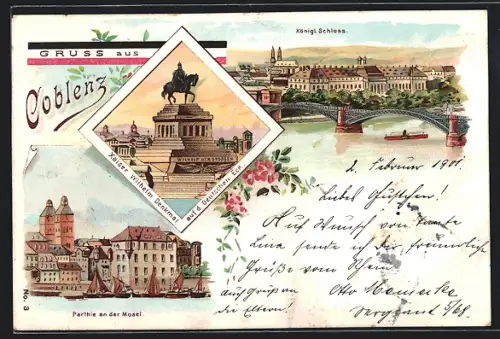 GRUSS aus
Coblenz
Königl. Schloss.
WILHELM DEM GROSSEN
Kaiser Wilhelm Denkmal
auf d. Deutschen Eck.
Parthie an der Mosel
No. 3
2. Februar 1901.
Liebes Gustchen!
Auf Wunsch von Tante
Lina sende ich Dir, freundliche
Grüße vom Rhein
Otto
Sergeant 5/68
die Eltern!